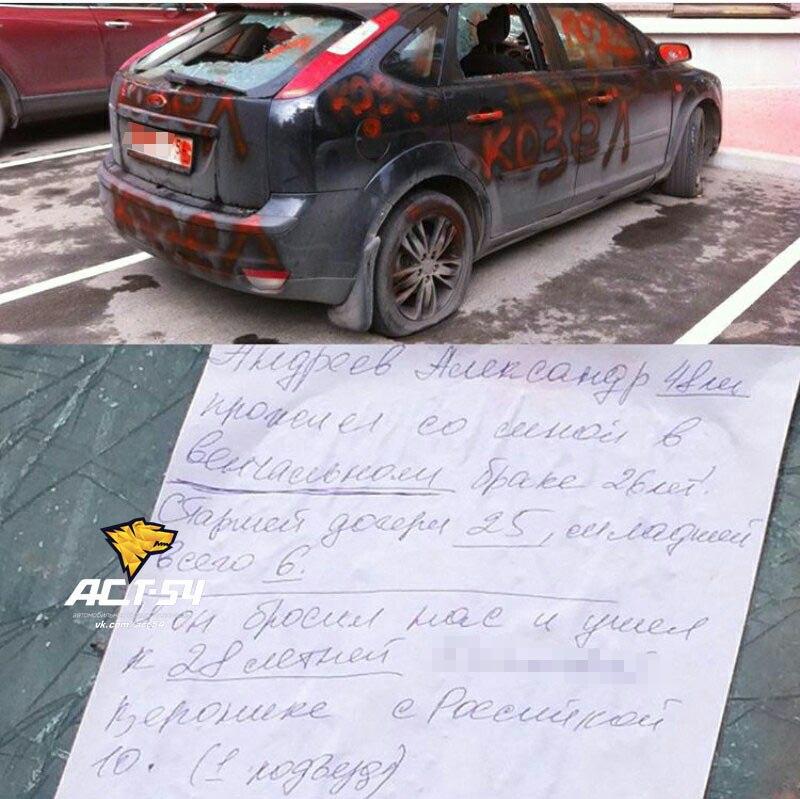 КОЗЕЛ
КОЗЕЛ
КОЗЕЛ
Андреев Александр 48 лет
прожил со мной в
венчальном браке 26 лет!
Старшей дочери 25, младшей
всего 6.
И он бросил нас и ушел
к 28 летней
Веронике с Российской
10. (1 подъезд)
АСТ-54
vk.com/act54